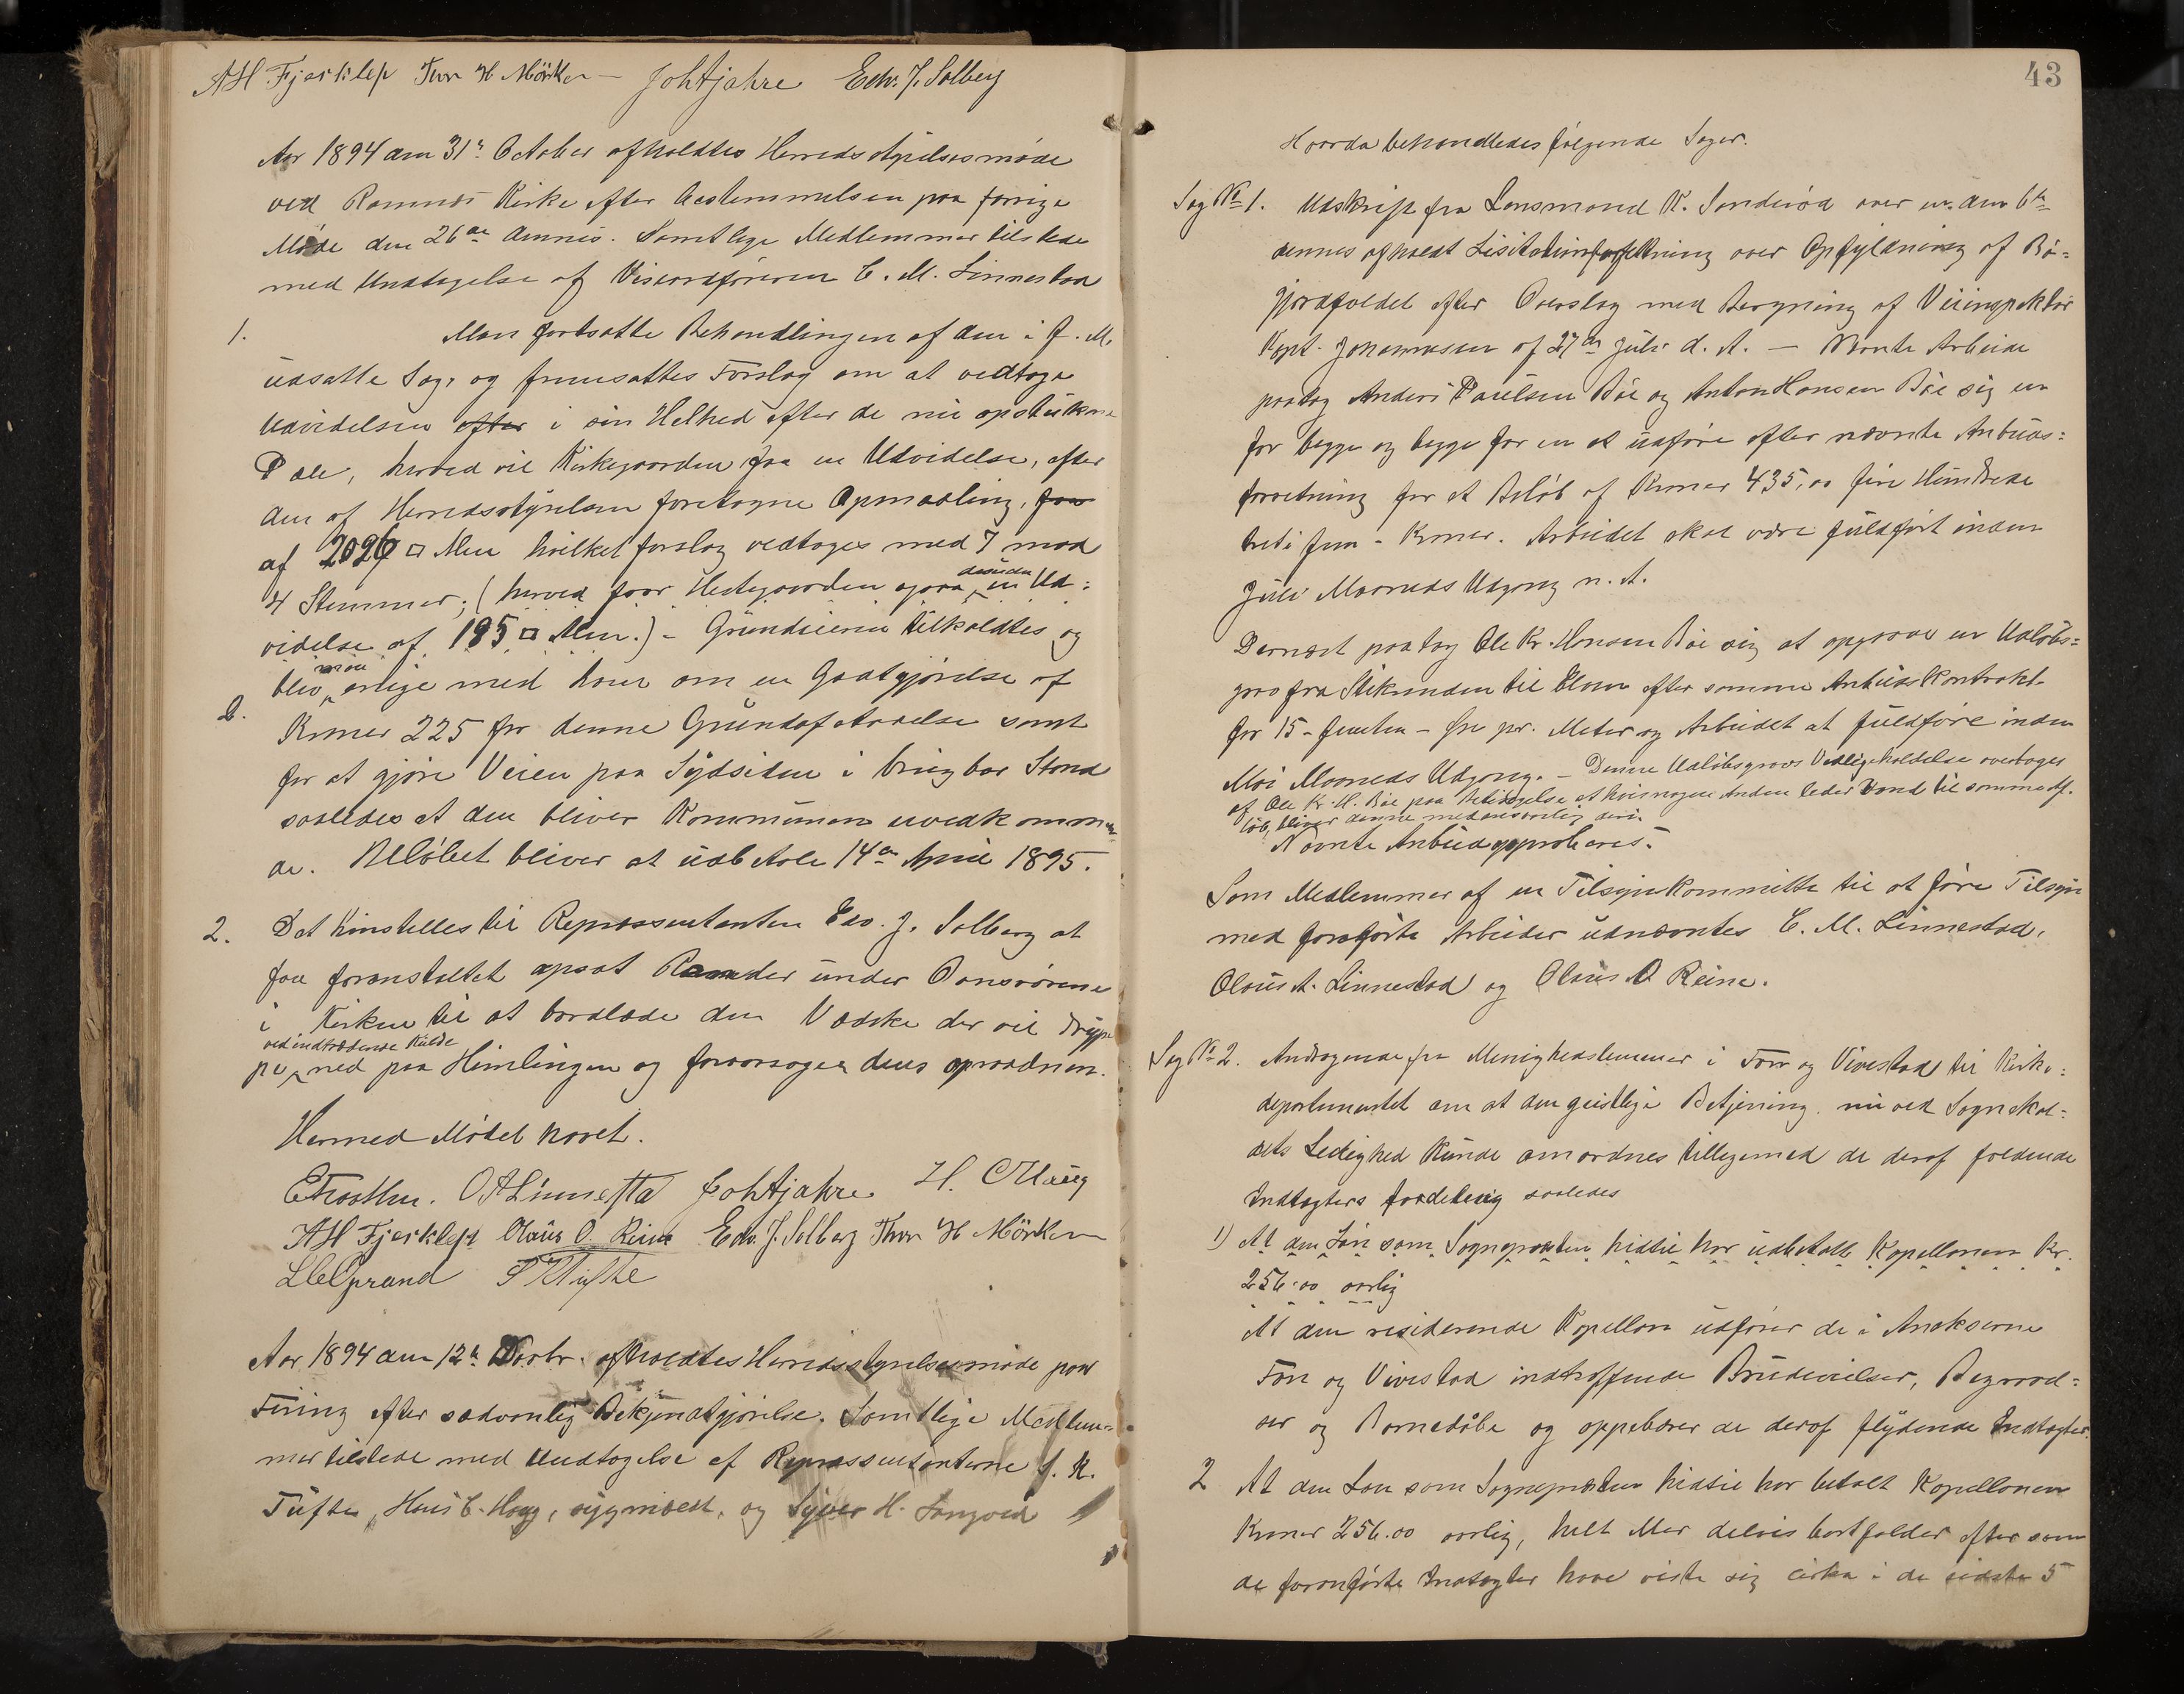 AH Fjærklep Thor H Mörken — Joh Hjahre Edv. J. Solberg
Aar 1894 den 31te October afholdtes Herredsstyrelsesmøde
ved Ramnæs Kirke efter bestemmelsen paa forrige
Møde den 26de dennes. Samtlige Medlemmer tilstede
med Undtagelse af Viseordføreren C. M. Linnestad
1. Man fortsatte Behandlingen af den i f. M.
udsatte Sag, og fremsattes Forslag om at vedtage
Udvidelsen efter i sin Helhed efter de nu opstukne
Pæle, herved vil Kirkegaarden faa en Udvidelse, efter
den af Herredsstyrelsen foretagne Opmaaling, faa
af 2096 □ Alen hvilket forslag vedtoges med 7 mod
4 Stemmer; (herved faar Hestegaarden ogsaa desuden en Ud=
videlse af 185 □ Alen.) – Grundeieren tilkaldtes og
2. blev man enige med ham om en Godtgjørelse af
Kroner 225 for denne Grundafstaaelse samt
for at gjøre Veien paa Sydsiden i brugbar Stand
saaledes at den bliver Kommunen uvedkommen
de. Beløbet bliver at udbetale 14de April 1895.
2. Det henstilles til Repræssentanten Edv. J. Solberg at
faa foranstaltet opsat Render under Ovnsrørene
i Kirken til at bortlede den Vædske der vil dryp
pe ved indtrædende Kulde ned paa Himlingen og foraarsager dens opraadnen.
Hermed Mødet hævet.
O A Linnestad Joh Hjahre H. C Haug
AH Fjærklep Olaus O. Reine Edv. J. Solberg Thor H Mörken
Aar 1894 den 12te Novbr. afholdtes Herredsstyrelsesmøde paa
Furing efter sædvanlig Bekjendtgjørelse. Samtlige Medlem=
mer tilstede med Undtagelse af Repræssentanterne S. K.
Tufte, Hans C. Haug, sygmeldt, og Syver H. Langved
43
Hvorda behandledes følgende Sager.
Sag No 1. Udskrift fra Lensmand K. Sanderød over en den 6te
dennes afholdt Lisitationsforretning over Opfyldning af Bø=
gjordfaldet efter Overslag med Beregning af Veiinspektør
Kapt. Johannesen af 27de Juli d. A. — Nævnte Arbeide
paatog Anders Paulsen Bøe og Anton Hansen Bøe sig en
for begge og begge for en at udføre efter nævnte Anbuds=
forretning for et Beløb af Kroner 435,00 fire Hundrede
treti fem – Kroner. Arbeidet skal være fuldført inden
Juli Maaneds Udgang n. A.
Dernæst paatog Ole Kr. Hansen Bøe sig at opgrave en Udløbs=
grav fra Stikrenden til Elven efter samme Anbudskontrakt
for 15 – femten – Øre pr. Meter og Arbeidet at fuldføre inden
Mai Maaneds Udgang. – Denne Udløbsgravs Vedligeholdelse overtages
af Ole Kr. H. Bøe paa Betingelse at hvis nogen Anden leder Vand til samme Af-
løb, bliver denne medansvarlig deri.
Nævnte Anbud approberes.
Som Medlemmer af en Tilsynskommitte til at føre Tilsyn
med foranførte Arbeider udnævntes C. M. Linnestad,
Olaus A. Linnestad og Olaus O Reine.
Sag No 2. Andragende fra Menighedslemmer i Fon og Vivestad til Kirke=
departementet om at den geistlige Betjening nu ved Sognekal=
dets Ledighed kunde omordnes tilligemed de deraf foldende
Indtægters fordeling saaledes
1) At den Løn som Sognepræsten hidtil har udbetalt Kapellanen Kr.
256.00 aarlig
At den residerende Kapellan udfører de i Anekserne
Fon og Vivestad indtræffende Brudevielser, Begravel=
ser og Barnedåbe og oppebærer de deraf flydende Indtægter.
2 At den Løn som Sognepræsten hidtil har betalt Kapellanen
Kroner 256.00 aarlig, helt eller delvis bortfalder efter som
de foranførte Indtægter have viste sig cirka i de sidste 5